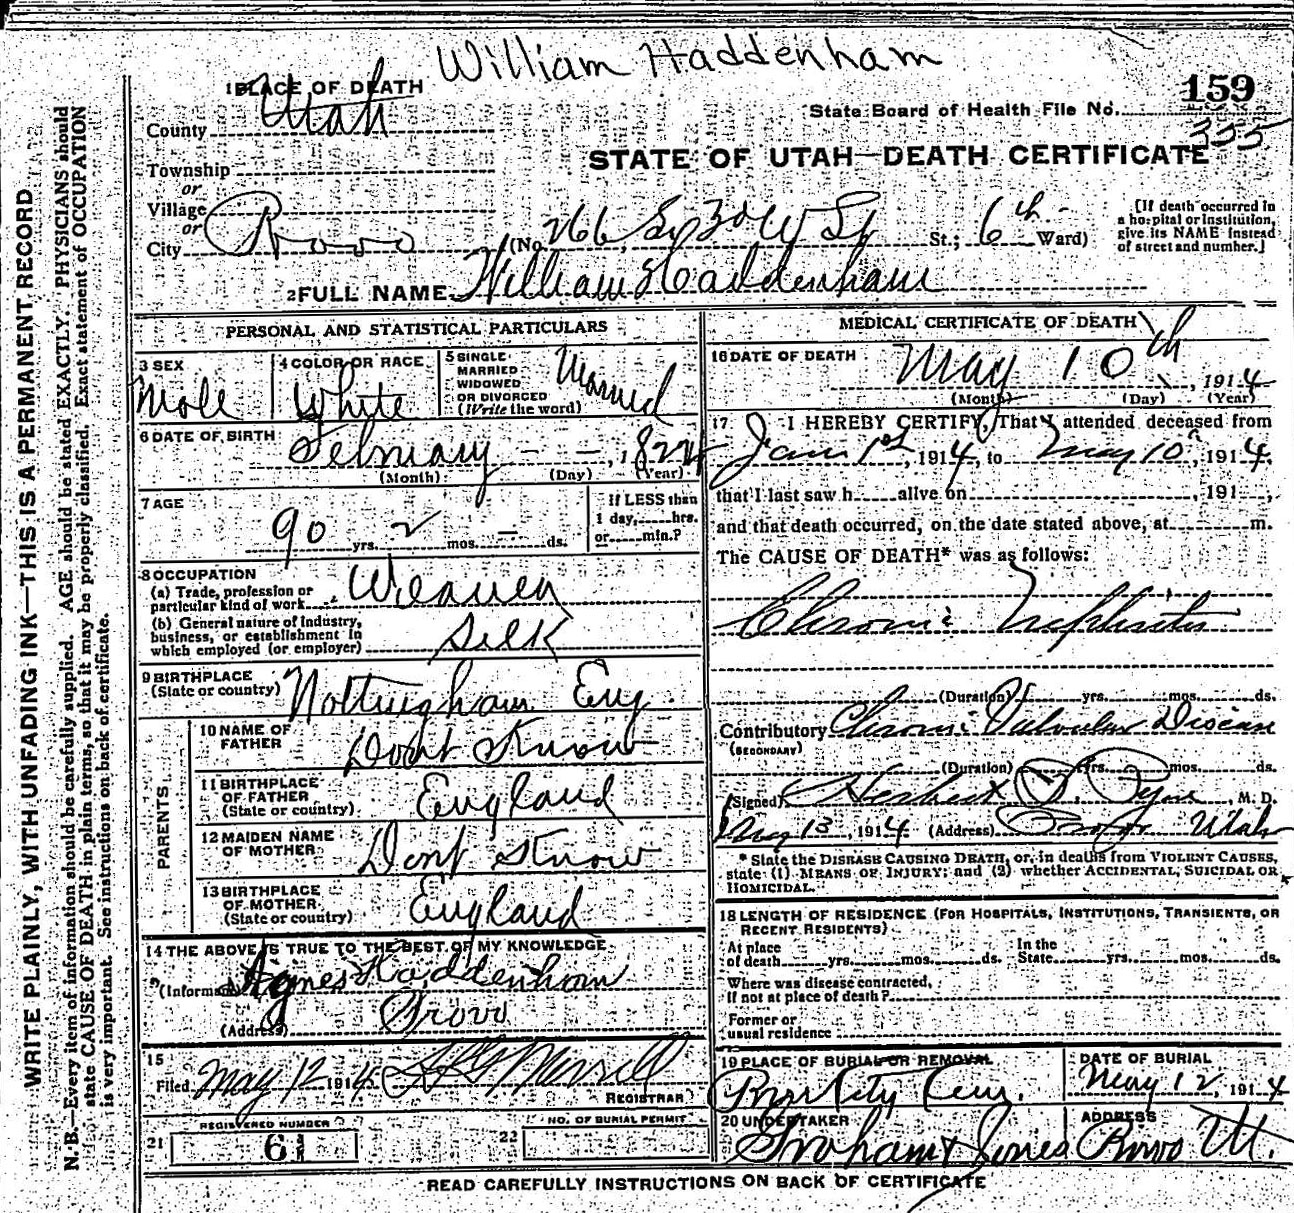 William Haddenham
1 PLACE OF DEATH
159
County Utah
State Board of Health File No.
335
Township
STATE OF UTAH—DEATH CERTIFICATE
or
Village
or
City Provo (No. 266 So 3d W St St.; 6th Ward)
[If death occurred in a hospital or institution, give its NAME instead of street and number.]
2 FULL NAME William Haddenham
PERSONAL AND STATISTICAL PARTICULARS
3 SEX
Male
4 COLOR OR RACE
White
5 SINGLE
MARRIED
WIDOWED
OR DIVORCED
(Write the word)
Married
6 DATE OF BIRTH
February - -, 1824
(Month) (Day) (Year)
7 AGE
90 yrs. 2 mos. - ds.
If LESS than
1 day, hrs.
or min.?
8 OCCUPATION
(a) Trade, profession or
particular kind of work Weaver
(b) General nature of industry,
business, or establishment in
which employed (or employer) Silk
9 BIRTHPLACE
(State or country) Nottingham Eng
PARENTS
10 NAME OF
FATHER Dont Know
11 BIRTHPLACE
OF FATHER
(State or country) England
12 MAIDEN NAME
OF MOTHER Dont Know
13 BIRTHPLACE
OF MOTHER
(State or country) England
14 THE ABOVE IS TRUE TO THE BEST OF MY KNOWLEDGE
(Informant) Agnes Haddenham
(Address) Provo
15
Filed May 12 1914 Merrill
REGISTRAR
REGISTERED NUMBER
21 61
NO. OF BURIAL PERMIT
22
MEDICAL CERTIFICATE OF DEATH
16 DATE OF DEATH
May 10th, 1914
(Month) (Day) (Year)
17 I HEREBY CERTIFY, That I attended deceased from
Jan 1st, 1914, to May 10, 1914,
that I last saw h alive on , 191 ,
and that death occurred, on the date stated above, at m.
The CAUSE OF DEATH* was as follows:
Chronic Nephritis
(Duration) yrs. mos. ds.
Contributory Chronic Valvular Disease
(SECONDARY)
(Duration) yrs. mos. ds.
(Signed) Herbert S. Pyne, M. D.
May 13, 1914 (Address) Provo Utah
* State the DISEASE CAUSING DEATH, or, in deaths from VIOLENT CAUSES,
state (1) MEANS OF INJURY; and (2) whether ACCIDENTAL, SUICIDAL OR
HOMICIDAL.
18 LENGTH OF RESIDENCE (FOR HOSPITALS, INSTITUTIONS, TRANSIENTS, OR
RECENT RESIDENTS)
At place
of death yrs. mos. ds.
In the
State yrs. mos. ds.
Where was disease contracted,
If not at place of death?
Former or
usual residence
19 PLACE OF BURIAL OR REMOVAL
Prov City Cem.
DATE OF BURIAL
May 12, 1914
20 UNDERTAKER
Graham & Jones
ADDRESS
Provo Ut.
READ CAREFULLY INSTRUCTIONS ON BACK OF CERTIFICATE
WRITE PLAINLY, WITH UNFADING INK—THIS IS A PERMANENT RECORD
N. B.—Every item of information should be carefully supplied. AGE should be stated EXACTLY. PHYSICIANS should
state CAUSE OF DEATH in plain terms, so that it may be properly classified. Exact statement of OCCUPATION
is very important. See instructions on back of certificate.